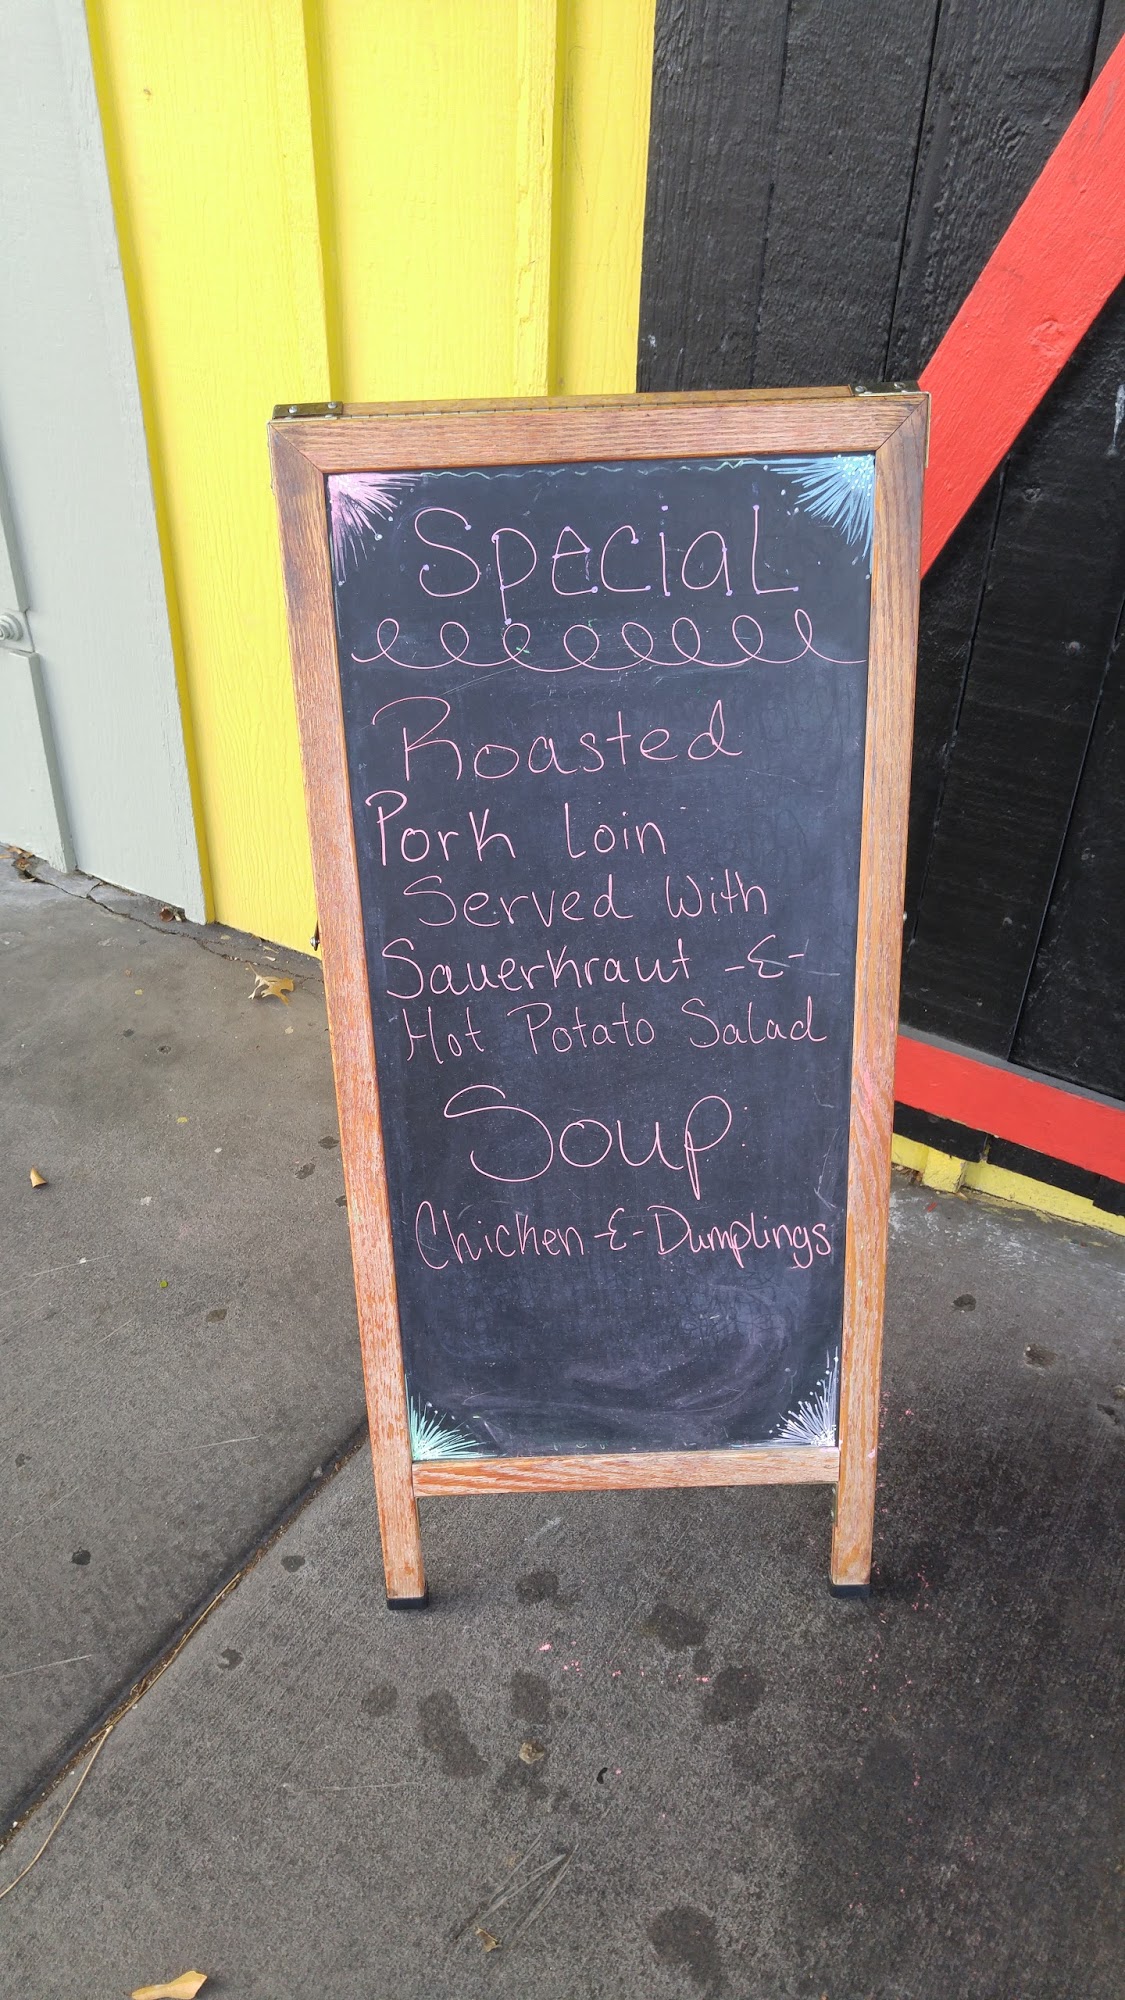 Special
Roasted
Pork Loin
Served With
Sauerkraut -&-
Hot Potato Salad
Soup
Chicken -&- Dumplings